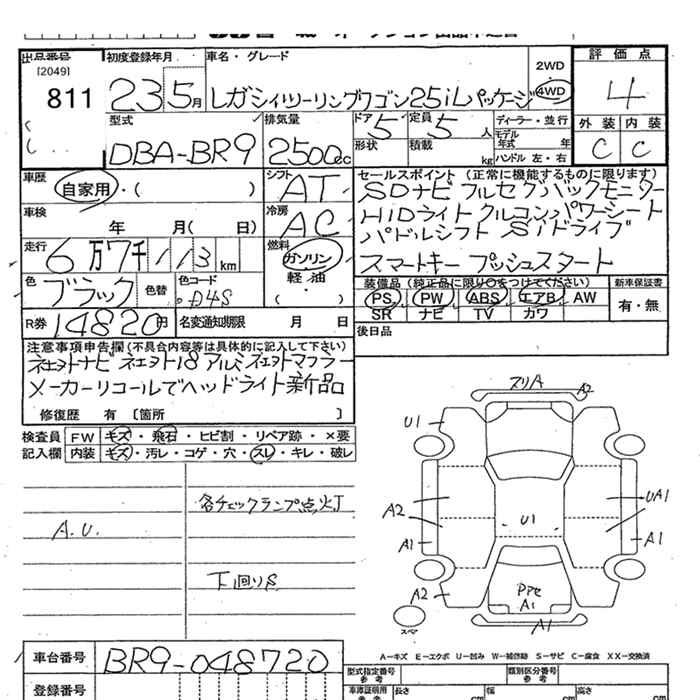 出品番号 初度登録年月 車名・グレード 2WD 評価点
[2049]
811 23 5月 レガシィツーリングワゴン25iLパッケージ 4WD 4
型式 排気量 ドア 5 定員 5人 ディーラー・並行 外装 内装
DBA-BR9 2500cc 形状 積載 kg モデル年式 年 C C
ハンドル 左・右
車歴 自家用・( ) シフト AT セールスポイント(正常に機能するものに限ります)
SDナビ フルセグ バックモニター
車検 年 月( 日) 冷房 AC HIDライト クルコン パワーシート
パドルシフト SIドライブ
走行 6万7千113km 燃料 ガソリン
スマートキー プッシュスタート
軽油
色 ブラック 色替 色コード D4S ( )
装備品(純正品に限り○をつけてください) 新車保証書
PS PW ABS エアB AW 有・無
SR ナビ TV カワ
R券 14820円 名変通知期限 月 日
後日品
注意事項申告欄(不具合内容等は具体的に記入して下さい)
社外ナビ 社外18アルミ 社外マフラー
メーカーリコールでヘッドライト新品
修復歴 有 〔箇所 〕
検査員 FW キズ・飛石・ヒビ割・リペア跡・×要
記入欄 内装 キズ・汚レ・コゲ・穴・スレ・キレ・破レ
スリA A2
U1
各チェックランプ点灯
A.U.
A2 U1 UA1
A1 A1
下回りS
A2 PPセ
A1
スペア A1
A-キズ E-エクボ U-凹み W-補修跡 S-サビ C-腐食 XX-交換済
車台番号 BR9-048720
型式指定番号 参考 類別区分番号 参考
登録番号 車庫証明用 参考 長さ cm 幅 cm 高さ cm